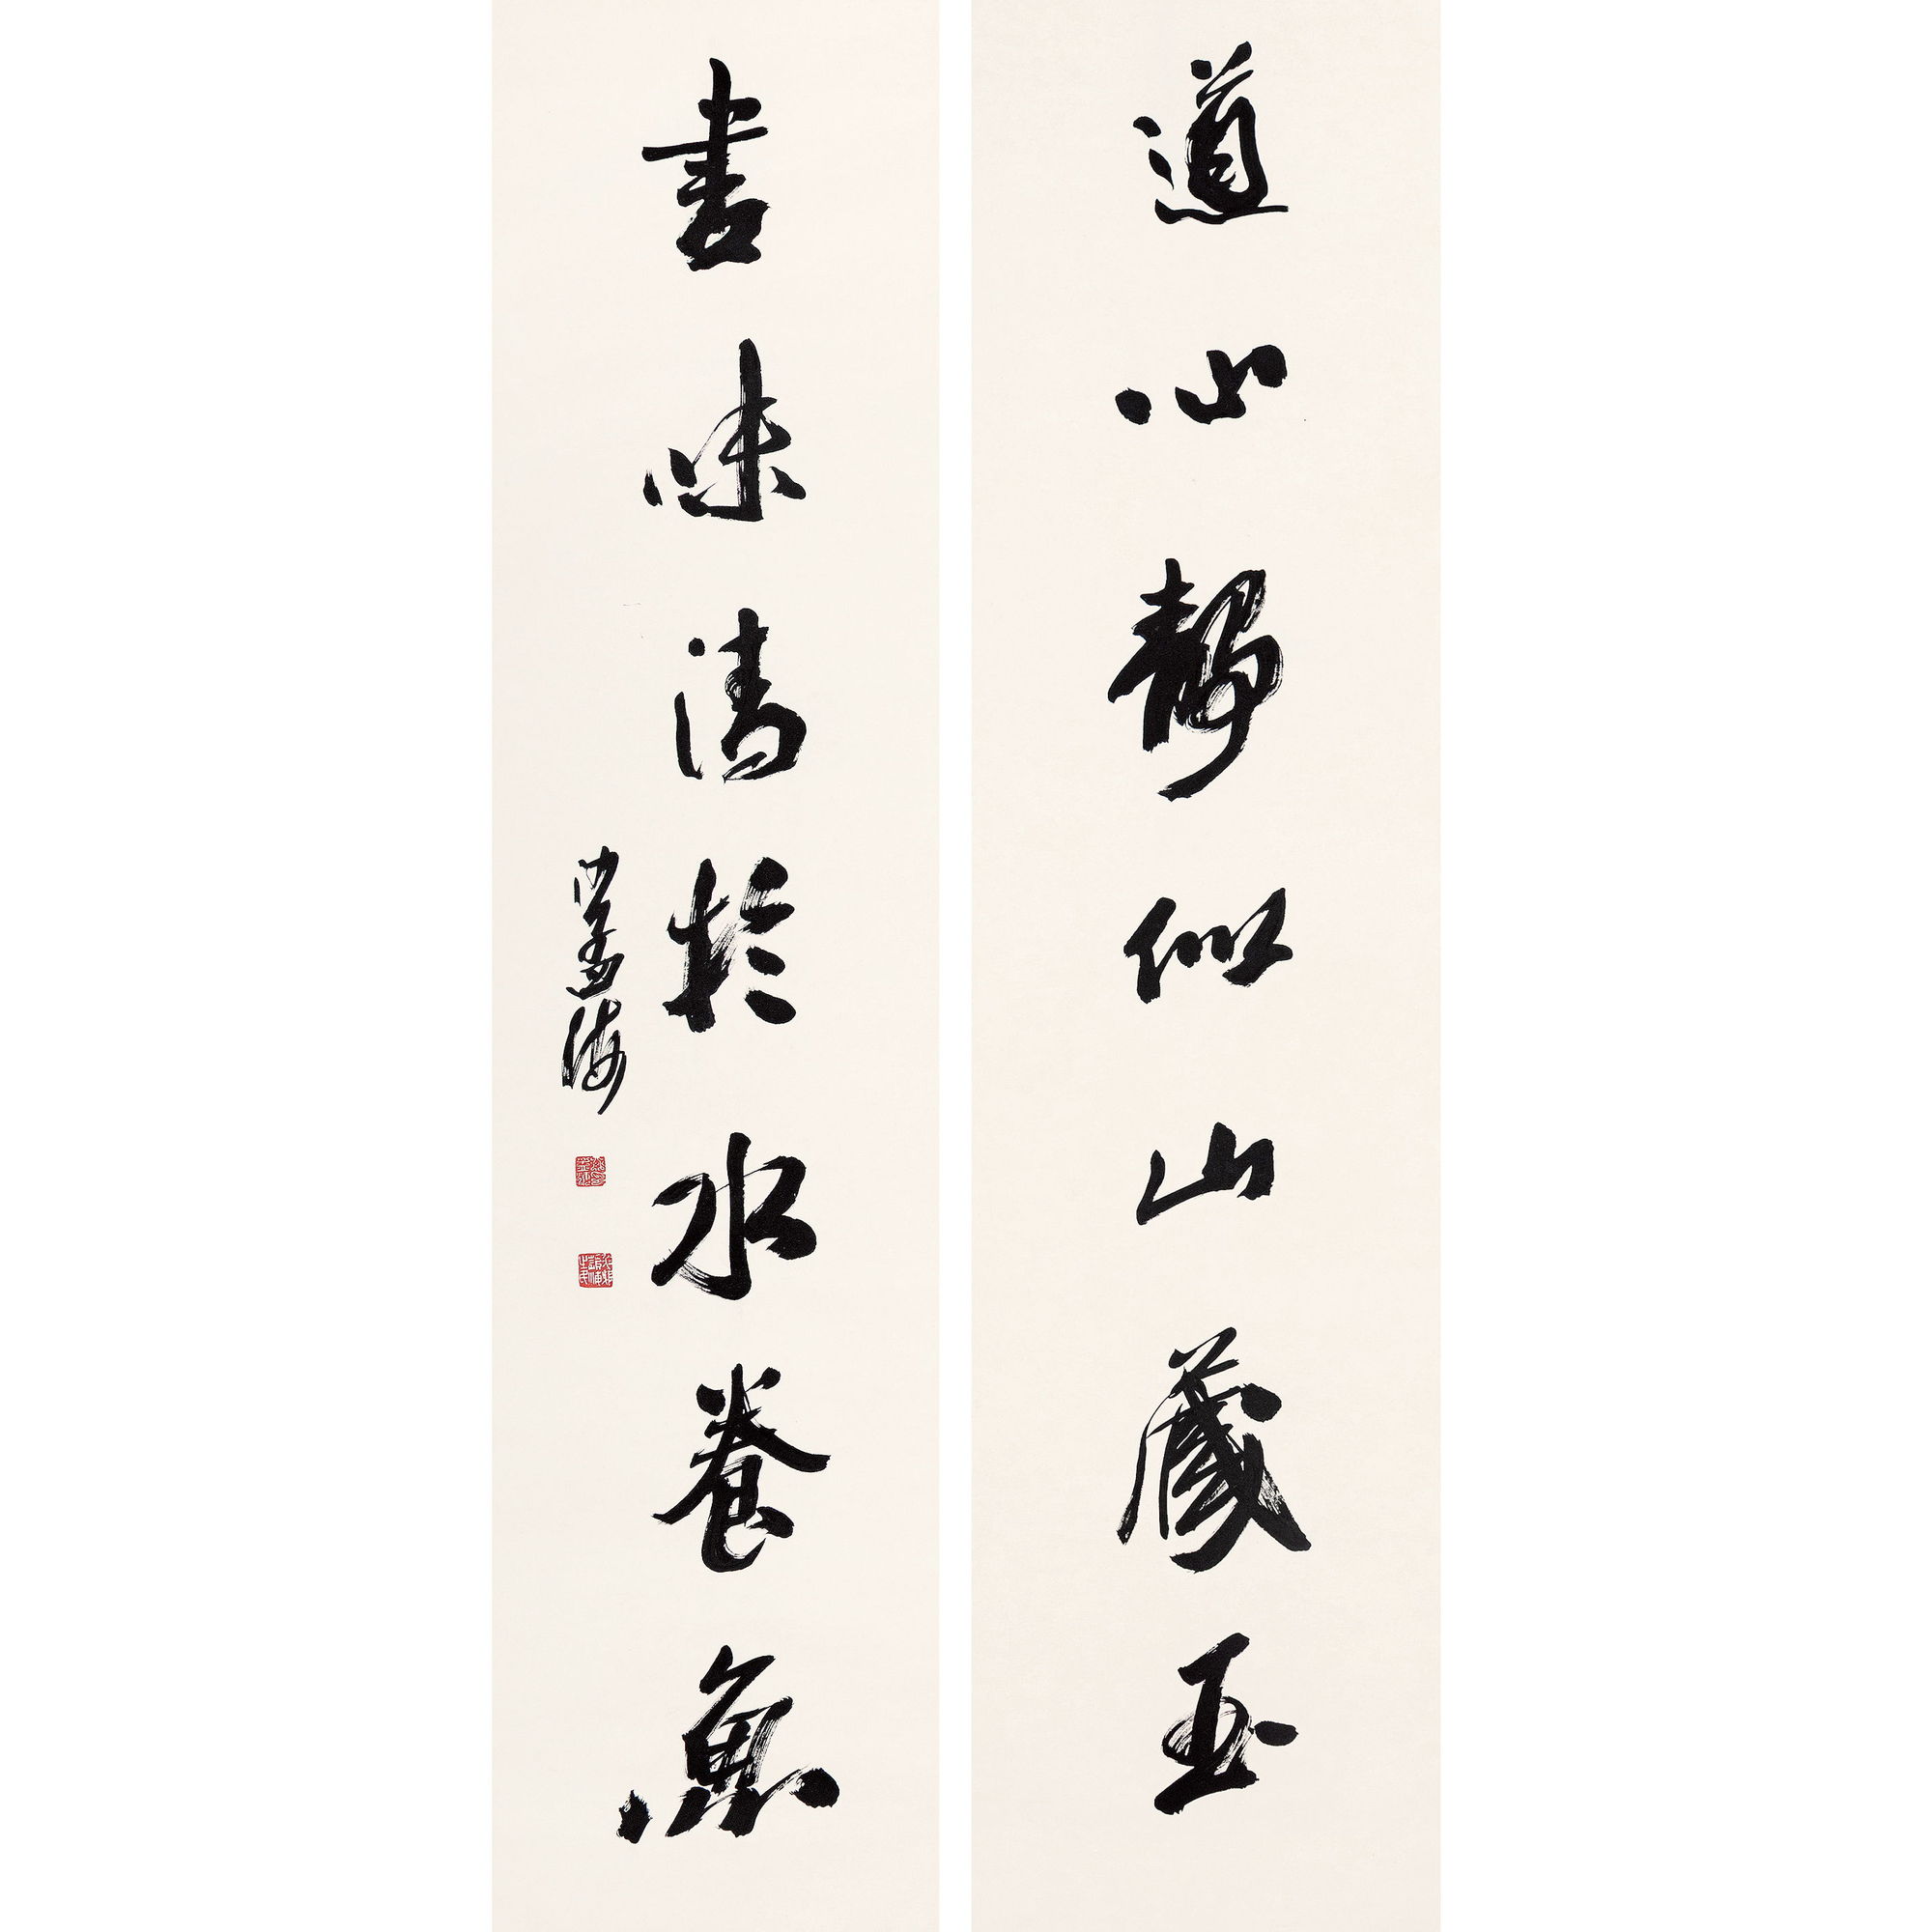 道心靜似山藏玉
書味清於水養魚
沙孟海